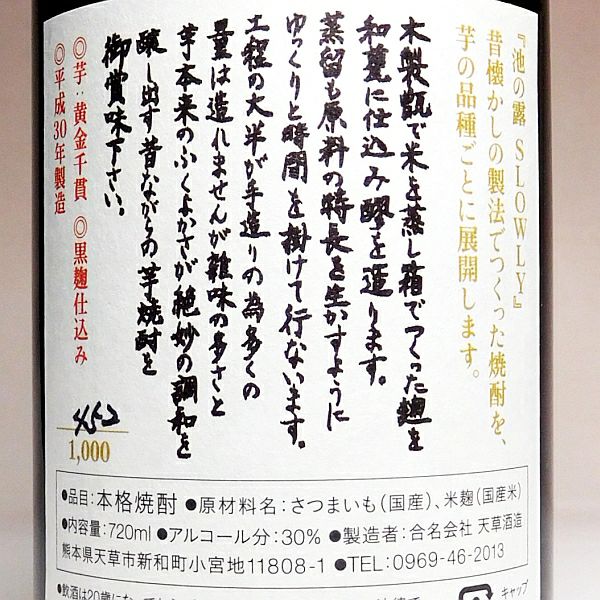 『池の露 SLOWLY』
昔懐かしの製法でつくった焼酎を、
芋の品種ごとに展開します。
木製甑で米を蒸し箱でつくった麹を
和甕に仕込み醪を造ります。
蒸留も原料の特長を生かすように
ゆっくりと時間を掛けて行ないます。
工程の大半が手造りの為多くの
量は造れませんが雑味の多さと
芋本来のふくよかさが絶妙の調和を
醸し出す昔ながらの芋焼酎を
御賞味下さい。
◎芋：黄金千貫 ◎黒麹仕込み
◎平成30年製造
452
1,000
●品目：本格焼酎 ●原材料名：さつまいも（国産）、米麹（国産米）
●内容量：720ml ●アルコール分：30% ●製造者：合名会社 天草酒造
熊本県天草市新和町小宮地11808-1 ●TEL：0969-46-2013
●飲酒は20歳になってから
キャップ